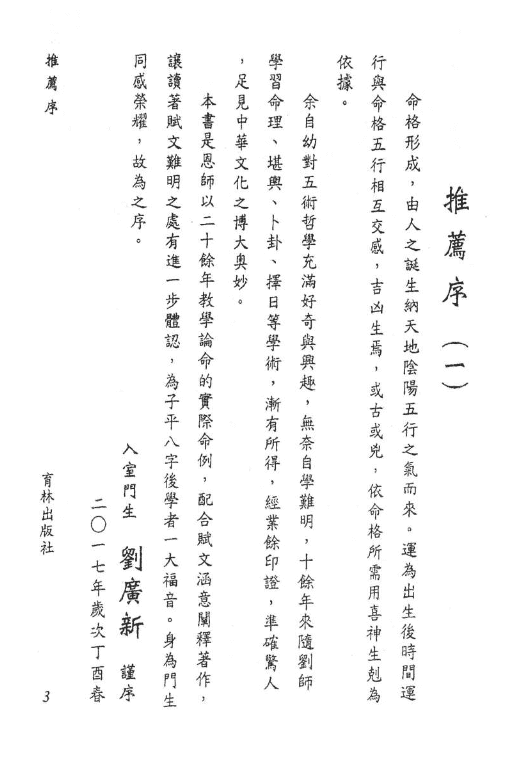 推薦序（一）
命格形成，由人之誕生納天地陰陽五行之氣而來。運為出生後時間運
行與命格五行相互交感，吉凶生焉，或古或兇，依命格所需用喜神生剋為
依據。
余自幼對五術哲學充滿好奇與興趣，無奈自學難明，十餘年來隨劉師
學習命理、堪輿、卜卦、擇日等學術，漸有所得，經業餘印證，準確驚人
，足見中華文化之博大奧妙。
本書是恩師以二十餘年教學論命的實際命例，配合賦文涵意闡釋著作，
讓讀著賦文難明之處有進一步體認，為子平八字後學者一大福音。身為門生
同感榮耀，故為之序。
入室門生　劉廣新　謹序
二〇一七年歲次丁酉春
推薦序
育林出版社
3